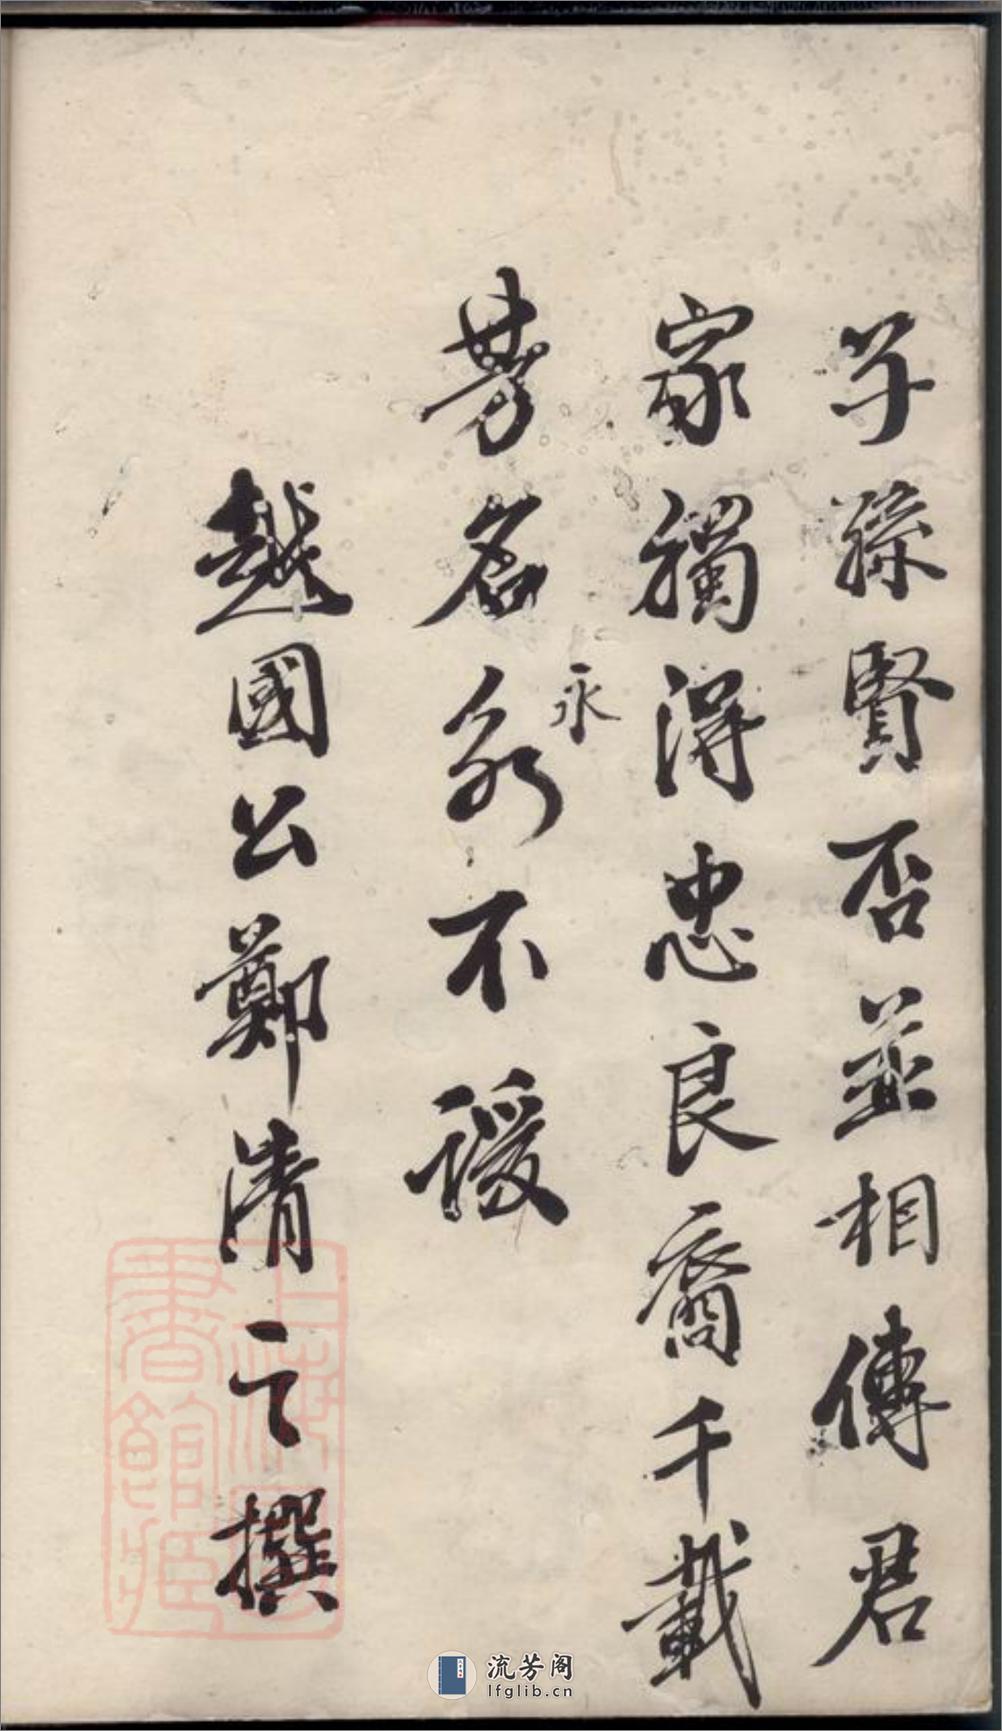 子孫賢否並相傳君
家獨得忠良裔千載
永
芳名永不諼
越國公鄭清之撰
上海圖書館藏
流芳阁
lfglib.cn